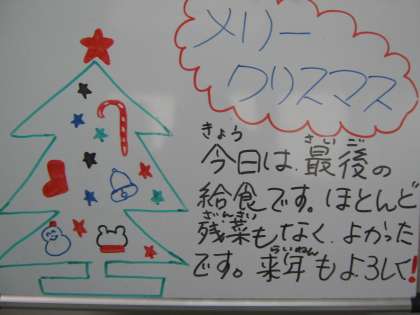 メリー
クリスマス
きょう さいご
今日は、最後の
給食です。ほとんど
ざんさい
残菜もなく、よかった
らいねん
です。来年もよろしく!